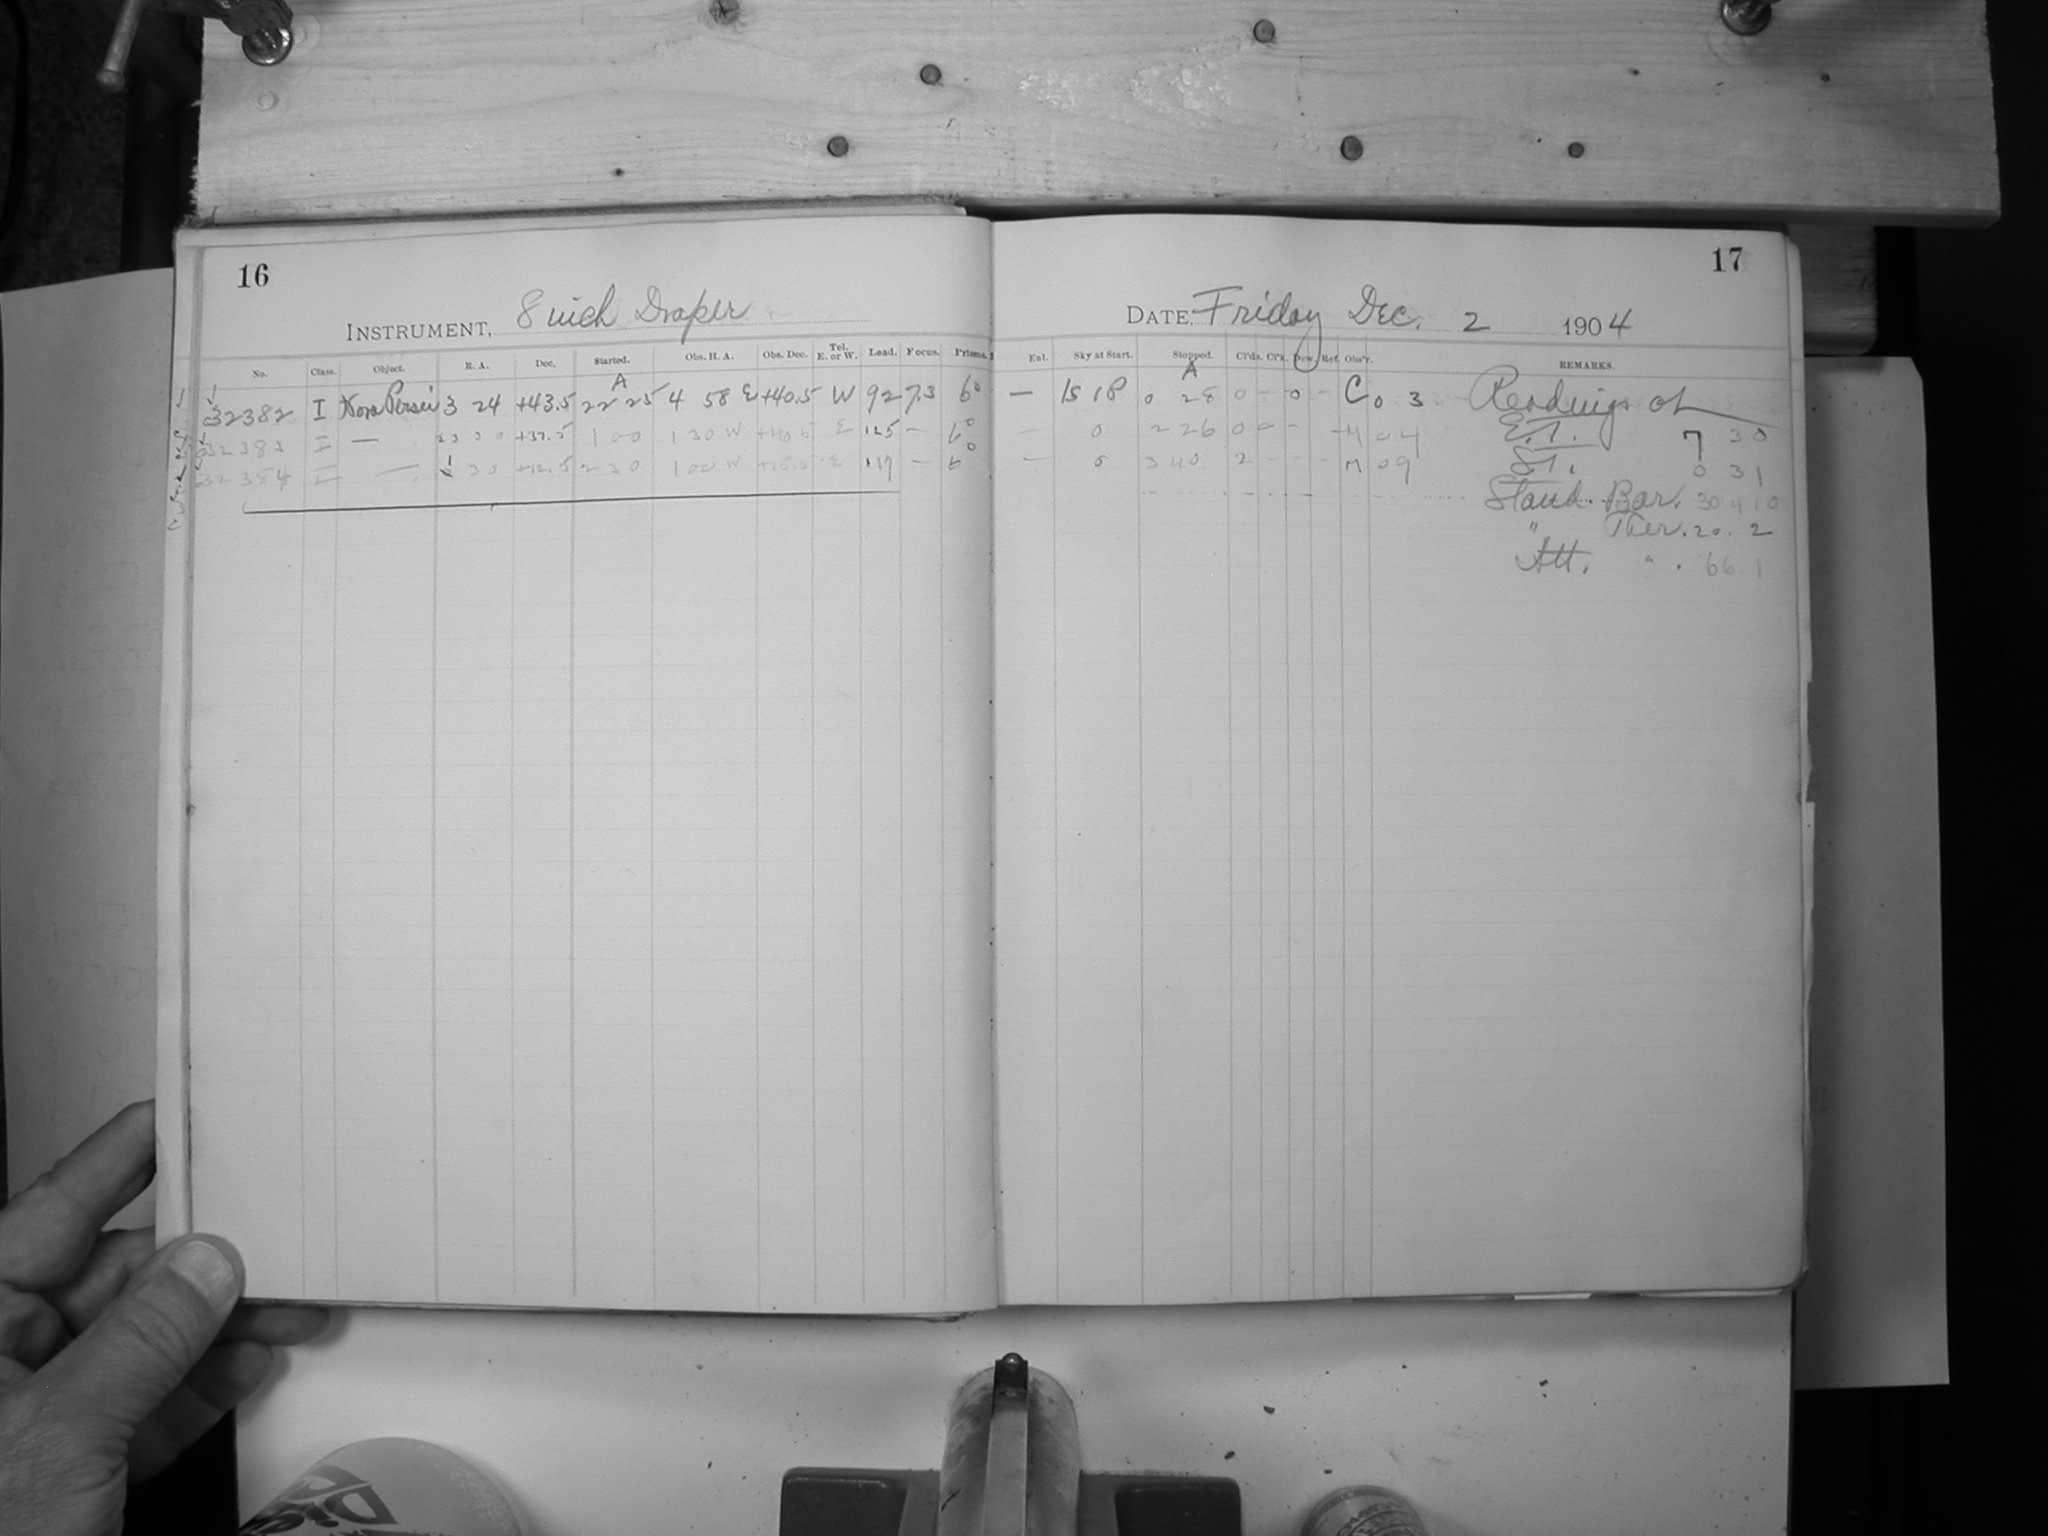 16
INSTRUMENT, 8 inch Draper
No. Class. Object. R. A. Dec. Started. Obs. H. A. Obs. Dec. Tel. E. or W. Load. Focus. Prisms.
A
32382 I Nova Persei 3 24 +43.5 22 25 4 58 E +40.5 W 92 7.3 6°
32383 I — 23 30 +37.5 1 00 1 30 W +40.5 E 125 — 6°
32384 I — 1 30 +12.5 2 30 1 00 W +15.5 E 119 — 6°
17
DATE, Friday Dec. 2 1904
Enl. Sky at Start. Stopped. Cl'ds. Cl'k. Dew. Ref. Obs'r. REMARKS.
A
— 0 28 0 - 0 - C 0 3 Readings of
— 0 2 26 0 - - - M 04 E.T. 7 30
— 0 3 40 2 - - - M 09 S.T. 0 31
Stand. Bar. 30 410
" Ther. 20. 2
Att. " . 66 1